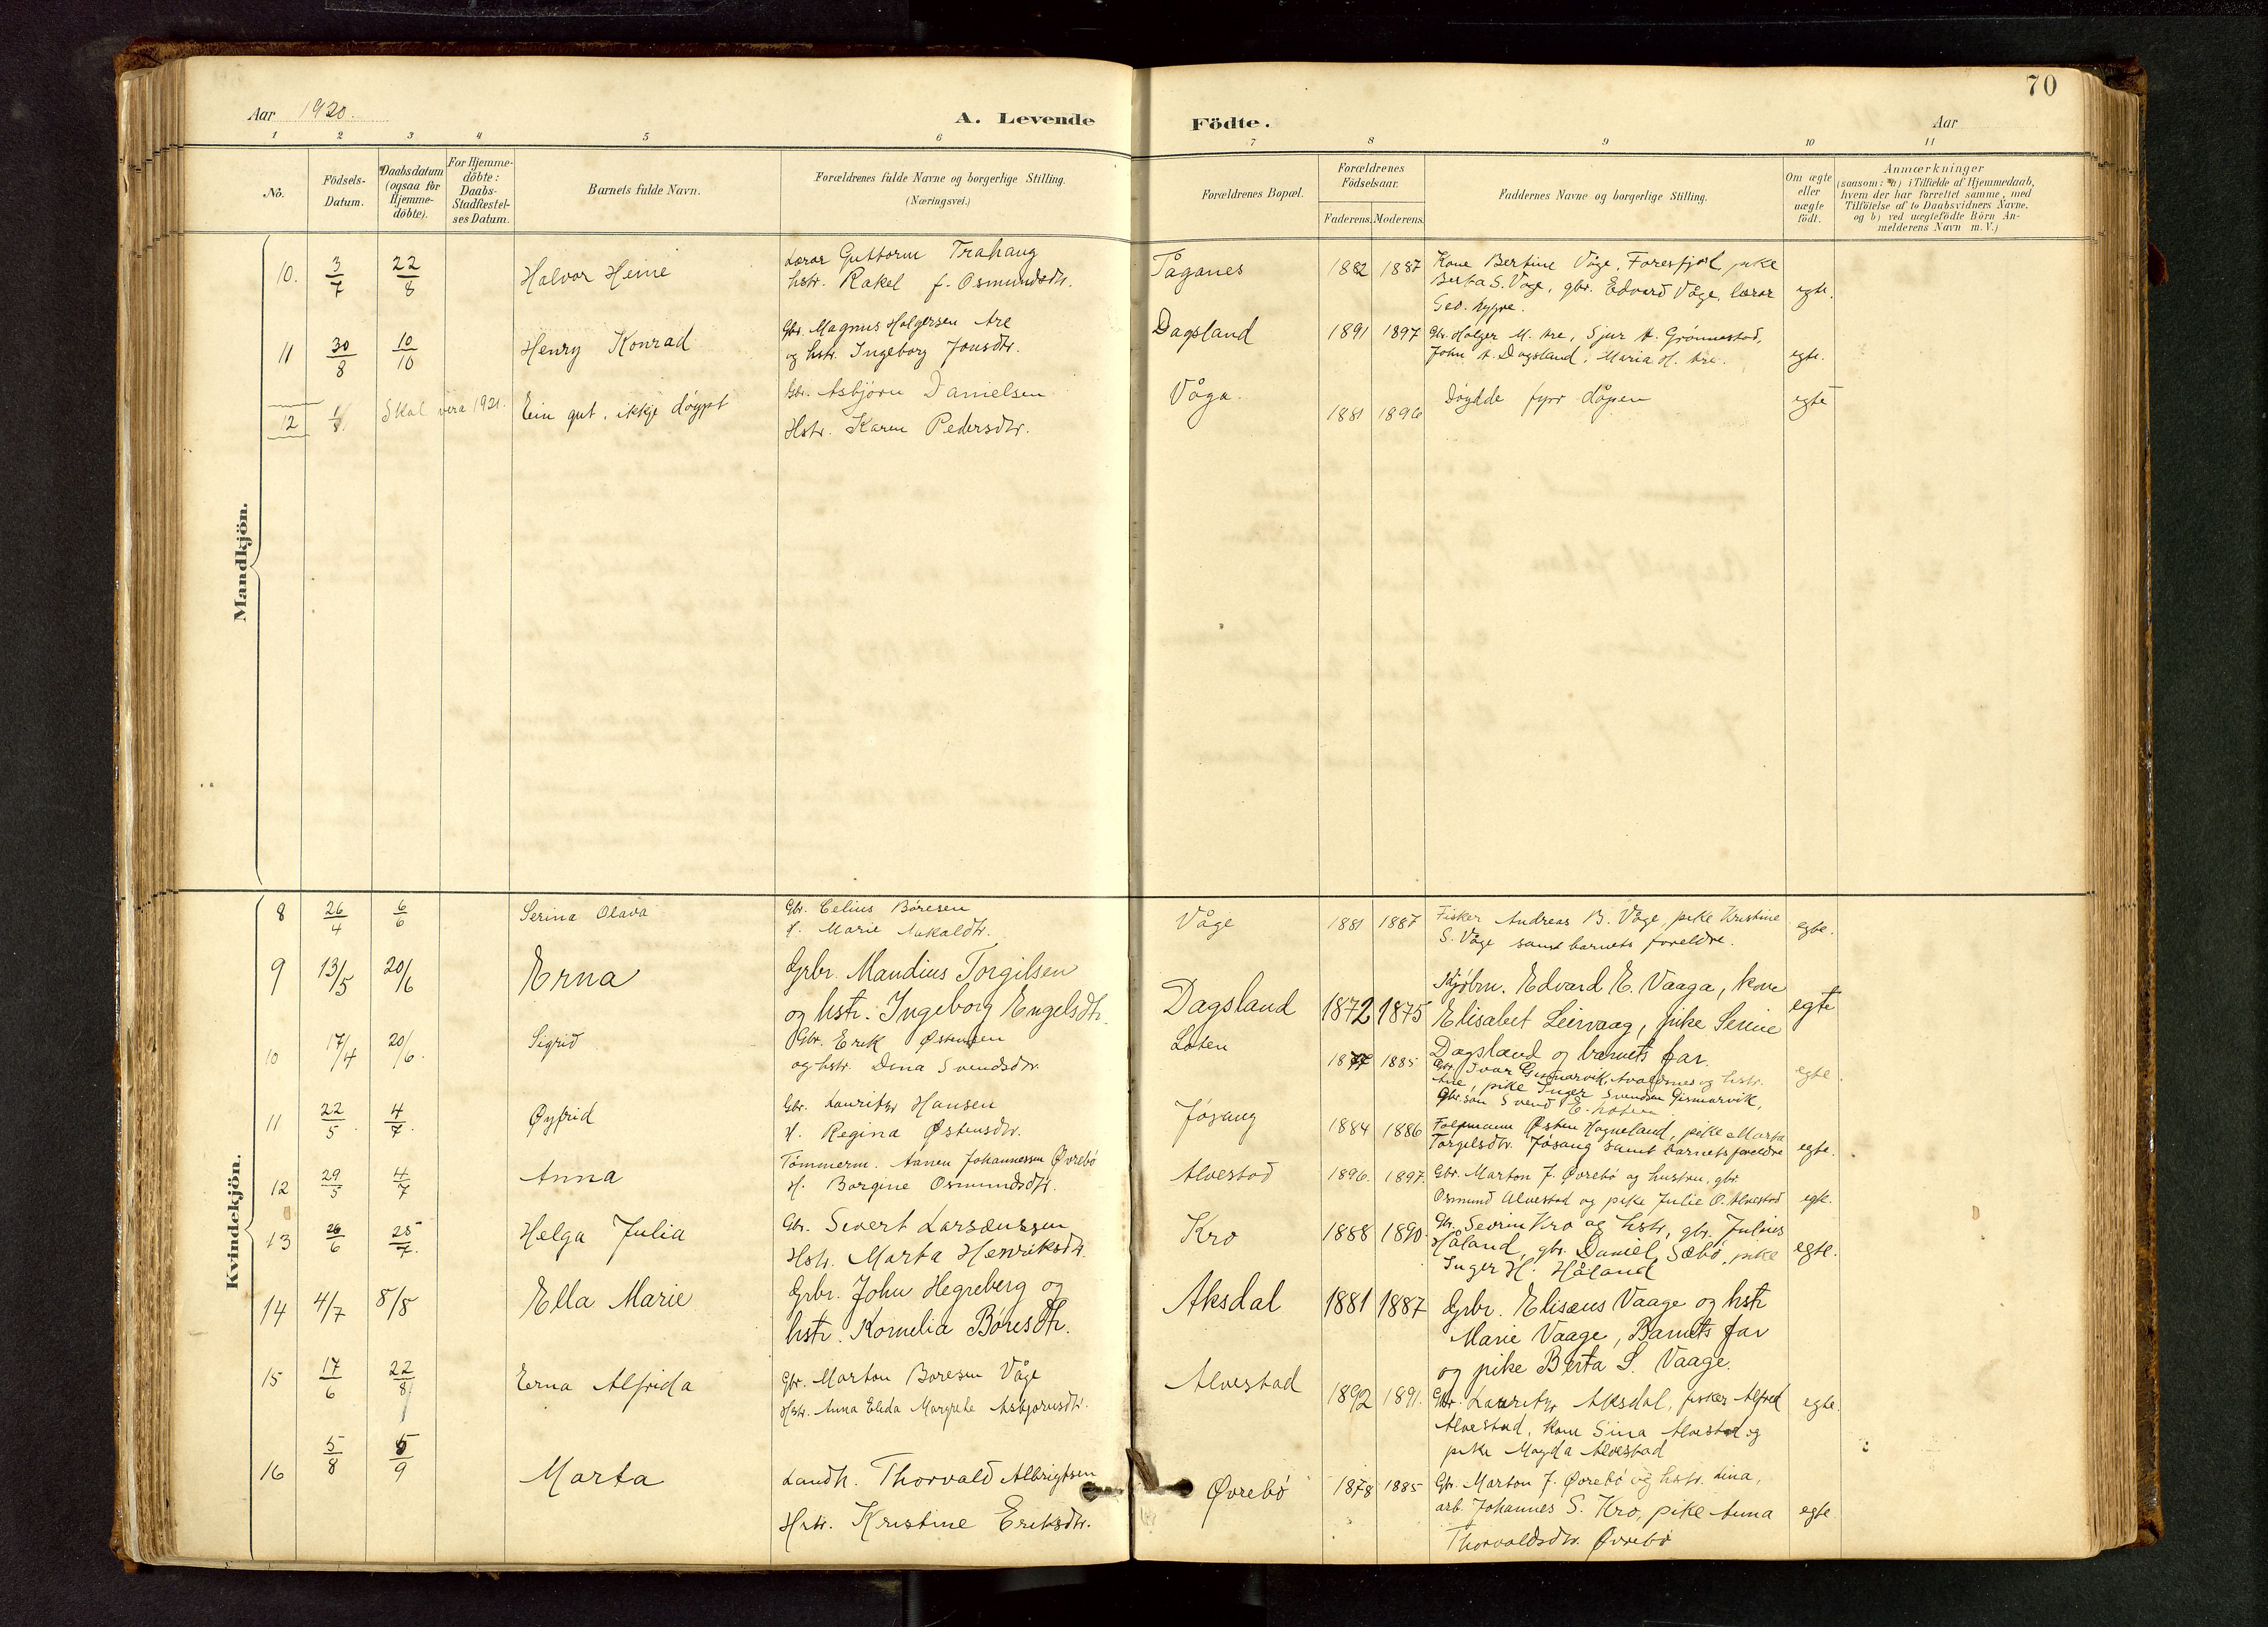 70
Aar 1920.
A. Levende Födte.
Aar
1 2 3 4 5 6 7 8 9 10 11
No.
Födsels-Datum.
Daabsdatum (ogsaa for Hjemme-döbte).
For Hjemme-döbte: Daabs-Stadfæstel-ses Datum.
Barnets fulde Navn.
Forældrenes fulde Navne og borgerlige Stilling.
(Næringsvei.)
Forældrenes Bopæl.
Forældrenes Födselsaar.
Faderens. Moderens.
Faddernes Navne og borgerlige Stilling.
Om ægte eller uægte födt.
Anmærkninger
(saasom: a) i Tilfælde af Hjemmedaab,
hvem der har forrettet samme, med
Tilföielse af to Daabsvidners Navne.
og b) ved uægtefödte Börn An-
melderens Navn m. V.)
Mandkjön.
10. 3/7 22/8 Halvor Heine
Lærar Guttorm Trahaug
hstr. Rakel f. Osmundsdtr.
Tåganes 1882 1887
Kone Bertine Våge, Foresfjed, pike
Berta S. Våge, gbr. Edvard Våge, lærar
Geo. Nygre.
egte.
11 30/8 10/10 Henry Konrad
Gbr. Magnus Holgersen Are
og hstr. Ingeborg Jonsdtr.
Dagsland 1891 1897
Gbr. Holger M. Are, Sjur A. Grönnestad,
John A. Dagsland, Maria H. Are.
egte.
12 Skal vera 1921. Ein gut, ikkje döypt
Gbr. Asbjörn Danielsen
Hstr. Karen Pedersdtr.
Våga. 1881 1896
Döydde fyrr dåpen
egte
Kvindekjön.
8 26/4 6/6 Serina Olava
Gbr. Celius Böresen
H. Marie Aakaldtr.
Våge 1881 1887
Fisker Andreas B. Våge, pike Kristine
S. Våge samt barnets foreldre.
egte.
9 13/5 20/6 Erna
Grbr. Mandius Torgilsen
og hstr. Ingeborg Engelsdtr.
Dagsland 1872 1875
Kjöbm. Edvard E. Vaaga, kone
Elisabet Leirvaag, pike Serine
Dagsland og barnets far.
egte
10 17/4 20/6. Sigrid
Gbr. Erik Østensen
og hstr. Dina Svendsdtr.
Loten 1885
Gbr. Ivar Gismarvik, Avaldsnes og hstr.
Ane, pike Inger Svendsen Gismarvik,
Gbr.son Svend E. Loten
egte
11 22/5. 4/7. Øyfrid
Gbr. Lauritz Hansen
H. Regina Østensdtr.
Jösang 1884 1886
Østen Hagneland, pike Marta
Torgelsdtr. Jösang samt barnets foreldre
egte.
12 29/5 4/7 Anna
Tömmerm. Aanen Johannessen Øvrebö
H. Borgine Osmundsdtr.
Alvestad 1896. 1897.
Gbr. Marton J. Øvrebö og hustru, gbr.
Osmund Alvestad og pike Julie O. Alvestad
egte.
13 26/6 25/7. Helga Julia
Gbr. Severt Larsenssen
Hstr. Marta Henriksdtr.
Kro 1888 1890.
Gbr. Sevrin Kro og hstr, gbr. Julius
Håland, gbr. Daniel Sæbö, pike
Inger H. Håland
egte.
14 4/7 8/8 Ella Marie
Grbr. John Hegreberg og
hstr. Kornelia Böresdtr.
Aksdal 1881 1887
Grbr. Elisæus Vaage og hstr
Marie Vaage, Barnets far
og pike Berta S. Vaage.
15 17/6 22/8 Erna Alfrida
Gbr. Morton Boresen Våge
Hstr. Anna Elida Margrete Asbjörnsdtr.
Alvestad 1892 1891.
Gbr. Lauritz Aksdal, fisker Alfred
Alvestad, kone Sina Alvestad og
pike Magda Alvestad
egte.
16 5/8 5/9 Marta
Landh. Thorvald Albrigtsen
Hstr. Kristine Eriksdtr.
Øvrebö 1878 1885
Gbr. Marton J. Øvrebö og hstr. Lina,
arb. Johannes S. Kro, pike Anna
Thorvaldsdtr. Øvrebö
egte.